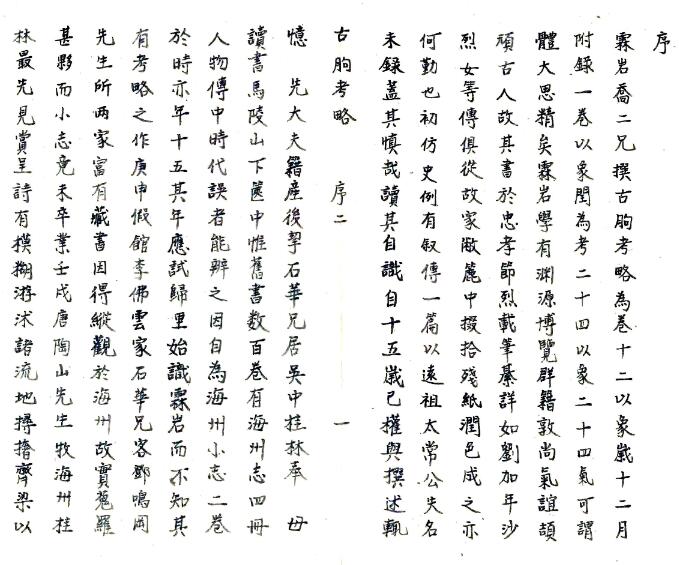 序
霖岩喬二兄撰古朐考略為卷十二以象歲十二月
附錄一卷以象閏為考二十四以象二十四氣可謂
體大思精矣霖岩學有渊源博覽群籍敦尚氣誼頡
頏古人故其書於忠孝節烈載筆綦詳如劉加年沙
烈女等傳俱從故家敝簏中掇拾殘紙潤色成之亦
何勤也初仿史例有叙傳一篇以遠祖太常公失名
未録蓋其慎哉讀其自識自十五歲已權輿撰述輒
古朐考略 序二 一
憶 先大夫籍產後挈石華兄居吳中桂林奉 母
讀書馬陵山下篋中惟舊書数百卷有海州志四冊
人物傳中時代誤者能辨之因自為海州小志二卷
於時亦年十五其年應試歸里始識霖岩而不知其
有考略之作庚申假館李佛雲家石華兄客鄧鳴岡
先生所两家富有藏書因得縱觀於海州故實蒐羅
甚夥而小志竟未卒業壬戌唐陶山先生牧海州桂
林最先見賞呈詩有摸糊游沭諸流地撏撦齊梁以